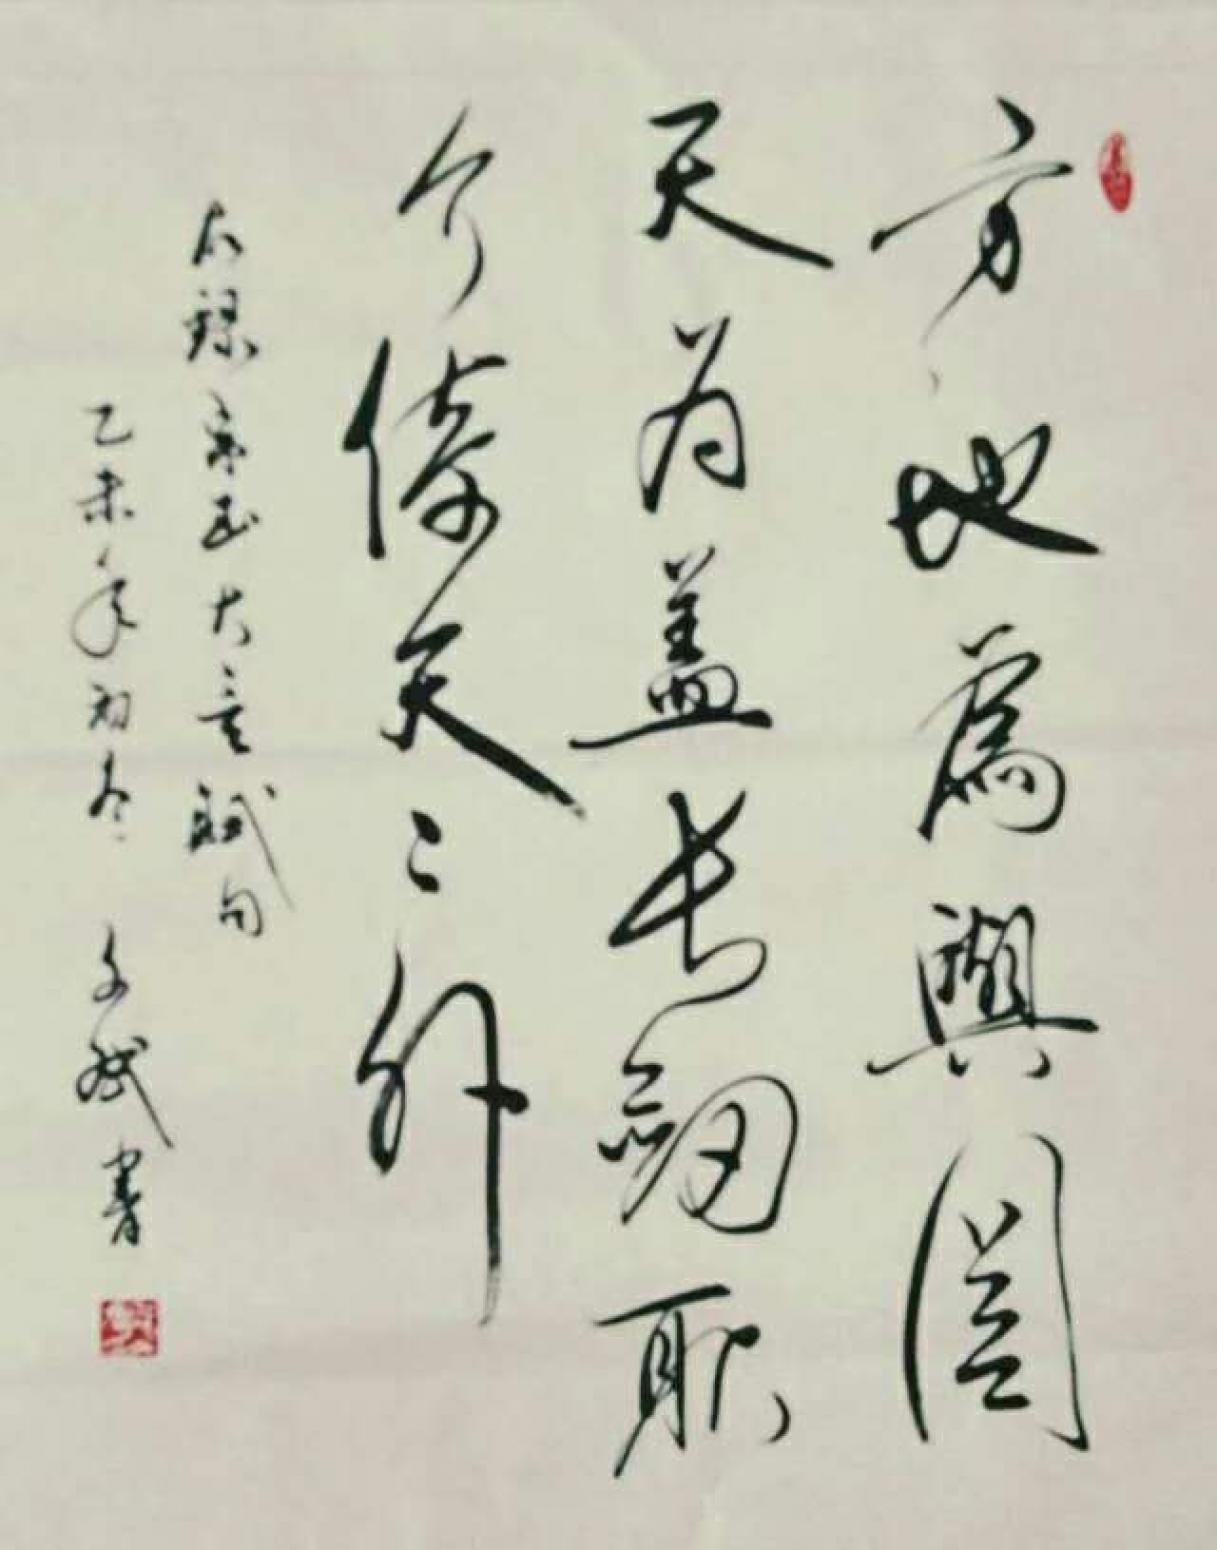 方地為輿圓
天为盖長劍耿
介倚天之外
右录宋玉大言賦句
乙未年初冬 文斌書